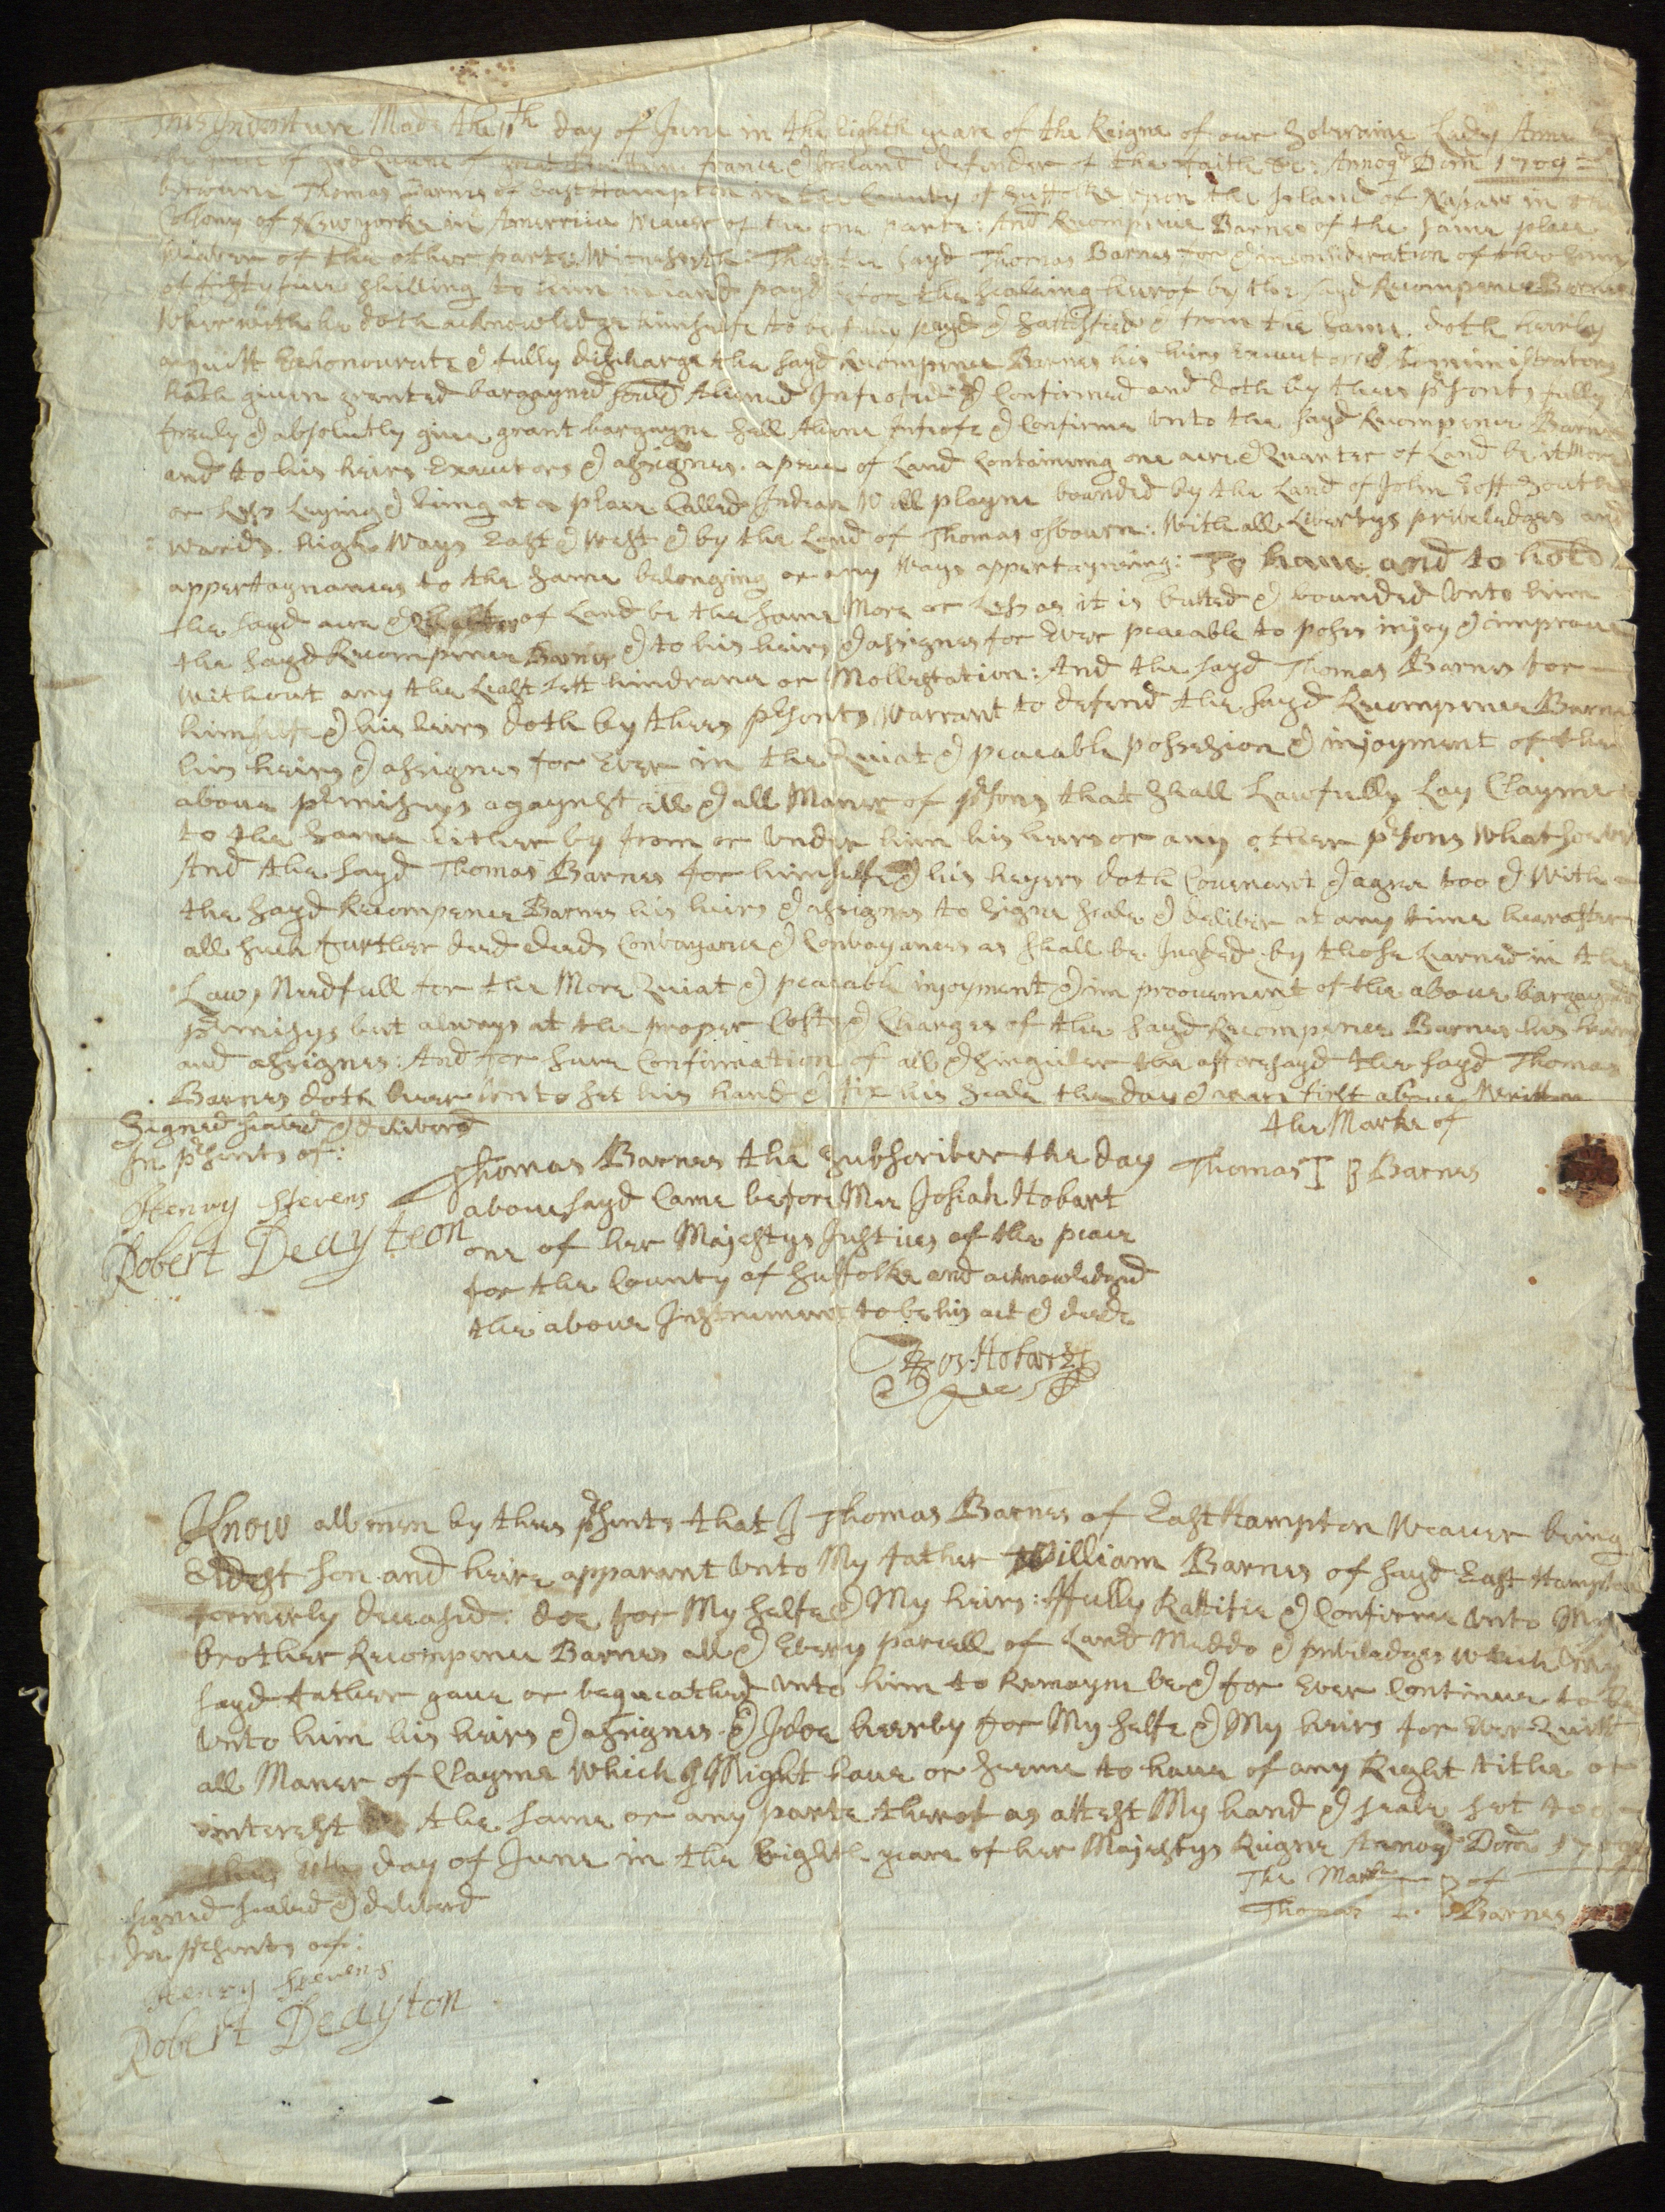 This Indenture Made the 11th day of June in the Eighth yeare of the Reigne of our Soveraine Lady Anne by
the grace of god Queene of great Brittain france & Ireland defender of the faith &c: Annoqe Dom 1709
betweene Thomas Barnes of East Hampton in the County of Suffolke upon the Island of Nasaw in the
Collony of New yorke in Amerrica Weaver of the one parte: And Recompence Barnes of the same place
Weaver of the other parte Witnesseth: That the sayd Thomas Barnes for & in consideration of the sum
of fifty five shilling to him in hand payd before the sealeing hereof by the sayd Recompence Barnes
Wherewith he doth acknowledge himselfe to be fully payd & sattisfied & from the same doth hereby
acquitt Exhonourate & fully discharge the sayd Recompence Barnes his heirs Executors & Administrators
hath given granted bargayned sould Aliened Infeofed & Confirmed and doth by thees prsents fully
freely & absolutly give grant bargayne sell Aliene infeofe & Confirme Unto the sayd Recompence Barnes
and to his heirs Executors & assignes. a peece of Land Containing one acre & Quarter of Land be it More
or Less Leying & being at a place Called Indian Well playne bounded by the Land of John South
wards. high Ways East & West & by the Land of Thomas osbourn: With all Libertys priveledges and
appertaynances to the same belonging or any Ways appertayneing: To have and to hold
the sayd acre & Quarter of Land be the same More or Less as it is butted & bounded Unto him
the sayd Recompence Barnes & to his heirs & assignes for Ever peacable to poses injoy & improve
Without any the Least Lett hindrance or Mollestation: And the sayd Thomas Barnes for
himselfe & his heirs doth by thees prsents Warrant to defend the sayd Recompence Barnes
his heirs & assignes for Ever in the Quiat & peacable possesion & injoyment of the
above prmisses agaynst all & all Maner of prsons that shall Lawfully Lay Clayme
to the same Either by from or under him his heirs or any other prsons Whatsoever
And the sayd Thomas Barnes for himselfe & his heyers doth Covenant & agree too & With
the sayd Recompence Barnes his heirs & assignes to signe seale & deliver at any time hereafter
all such further deed deeds Convayance & Convayances as shall be Judged by those Learned in the
Law, Needfull for the More Quiat & peacable injoyment & improovement of the above bargayned
prmisys but always at the proper Costs & Charges of the sayd Recompence Barnes his heirs
and assignes: And for sure Confirmation of all & singuler the afforesayd the sayd Thomas
Barnes doth here Unto set his hand & fix his seale the day & yeare first above Written
Signed sealed & delivered
In prsents of:
Henry Stevens
Robert Deayteon
the Marke of
Thomas T B Barnes
Thomas Barnes the subscriber the day
abovesayd Came before Mee Josiah Hobart
one of her Majestys Justices of the peace
for the County of Suffolke and acknowledged
the above Instrument to be his act & deede
Jos. Hobart
Know all men by thees prsents that I Thomas Barnes of East Hampton Weaver being
Eldest son and heire apparant Unto My father William Barnes of sayd East Hampton
formerly deceased: doe for My selfe & My heirs: ffully Rattifie & Confirme Unto My
brother Recompence Barnes all & Every parcell of Land Meddo & priveladges which My
sayd father gave or bequeathed Unto him to Remayne be & for Ever Continue to be
Unto him his heirs & assignes. & I doe hereby for My selfe & My heirs for Ever Quitt
all Maner of Clayme Which I Might have or seeme to have of any Right title or
interest the same or any parte therof as attest My hand & seale set to
this 11th day of June in the Eighth yeare of her Majestys Reigne Annoqe Dom 1709
signed sealed & delivered
In prsents of:
Henry Stevens
Robert Deayton
The Marke T B of
Thomas Barnes